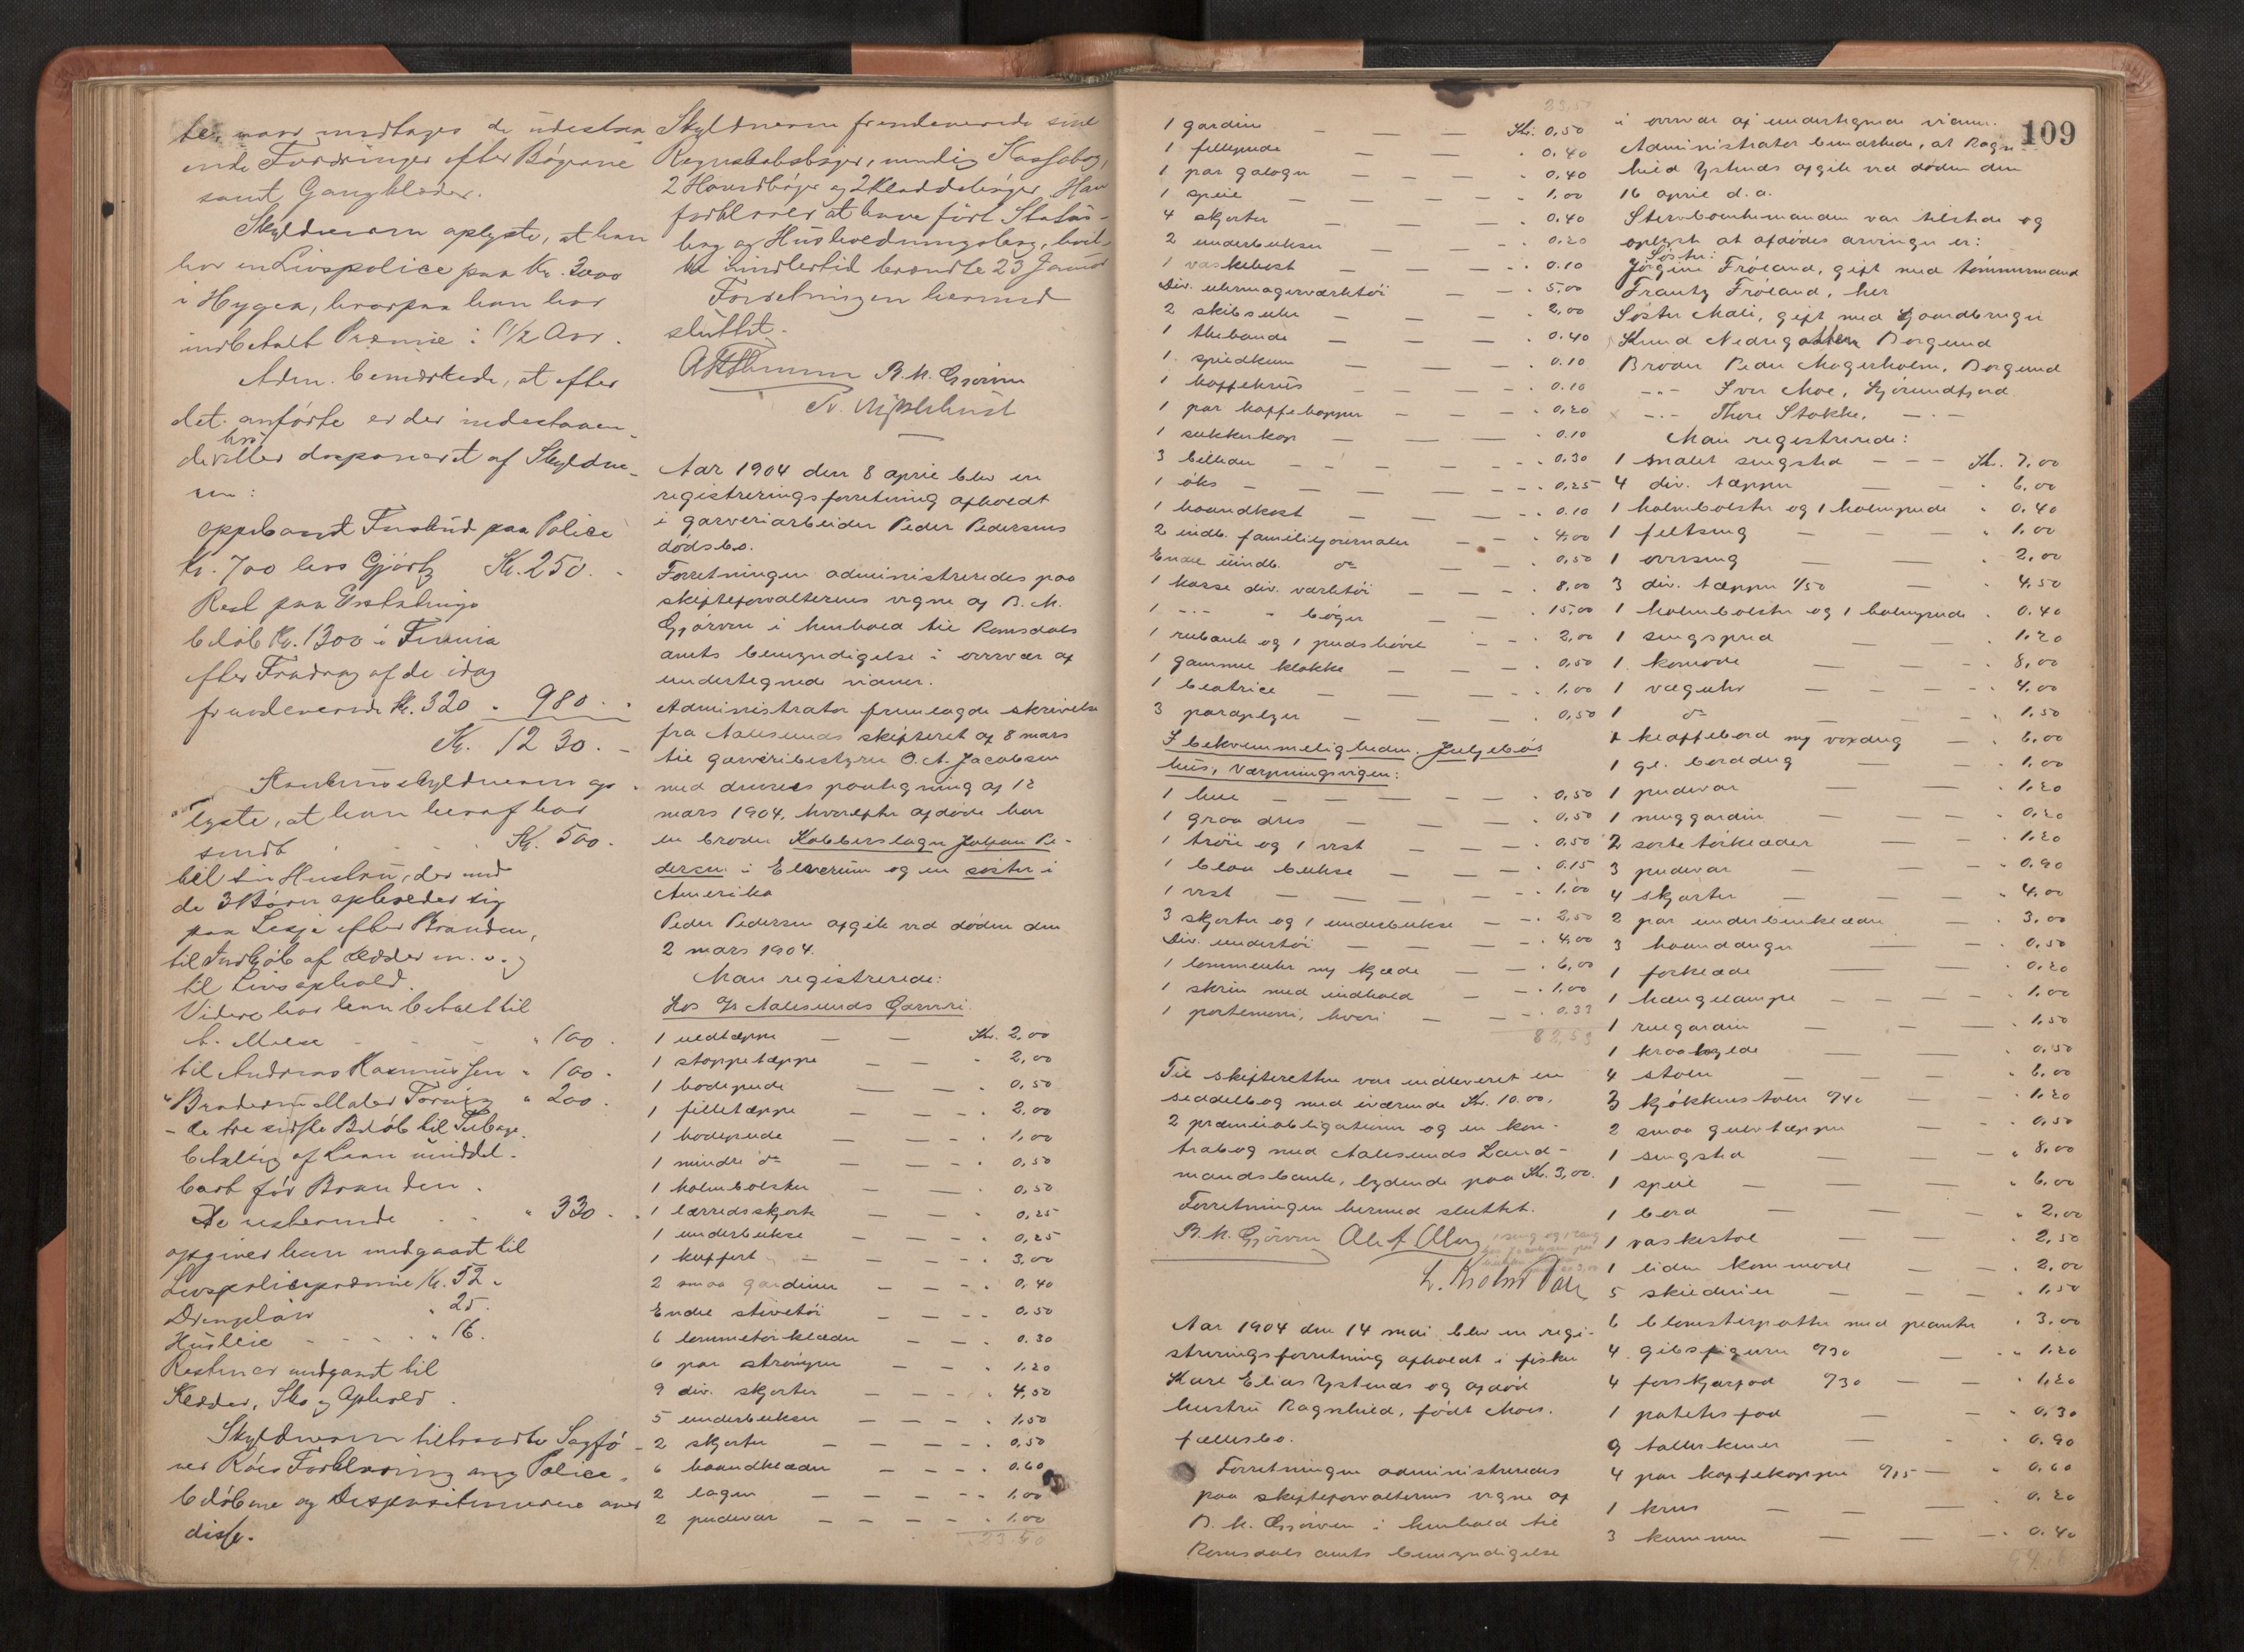 ter, naar undtages de udestaa
ende Fordringer efter Bøgerne
samt Gangklæder.
Skyldneren oplyste, at han
har en Livspolice paa Kr. 3000
i Hygea, hvorpaa han har
indbetalt Præmie i 1 1/2 Aar.
Adm. bemærkede, at efter
det anførte er der indestaaen-
de eller disponeret af Skyldne-
ren:
oppebaaret Forskud paa Police
Kr. 700 hos Gjørtz Kr. 250. -
Rest paa Erstatnings
beløb Kr. 1300 i Fimia
efter Fradrag af de idag
fremleverede Kr. 320 . 980 . .
Kr. 1230. -
Konkursskyldneren op-
lyste, at han heraf har
sendt . . . Kr. 500.
til sin Hustru, der med
de 3 Børn opholder sig
paa Lesje efter Branden,
til Indkjøb af Klæder m. v. og
til Livsophold.
Videre har han betalt til
" 100 .
til Andreas Rasmussen " 100 .
" Broderen Maler " 200 .
- de tre sidste Beløb til Tilbage-
betaling af Laan umiddel-
bart før Branden .
De resterende . . " 330 . .
opgiver han medgaaet til
Livspolicepræmie Kr. 52 .
" 25.
Husleie - - - " 16.
Resten er medgaaet til
Klæder, Sko og Ophold .
Skyldneren tiltraadte Sagfø-
rer Røes Forklaring ang. Police-
beløbene og Dispositionerne over
disse.
Skyldneren fremleverede sine
Regnskabsbøger, nemlig Kassabog,
2 Hovedbøger og 2 Kladdebøger. Han
forklarer at have ført Status-
bog og Husholdningsbog, hvil-
ke imidlertid brændte 23 Januar
Forretningen hermed
sluttet.
B. M. Gjørven
Aar 1904 den 8 april blev en
registreringsforretning afholdt
i garveriarbeider Peder Pedersens
dødsbo.
Forretningen administreredes paa
skifteforvalterens vegne af B. M.
Gjørven i henhold til Romsdals
amts bemyndigelse i overvær af
undertegnede vidner.
Administrator fremlagde skrivelse
fra Aalesunds skifteret af 8 mars
til garveribestyrer O. A. Jacobsen
med dennes paategning af 12
mars 1904, hvorefter afdøde har
en broder Kobberslager Johan Pe-
dersen i Elverum og en søster i
Amerika
Peder Pedersen afgik ved døden den
2 mars 1904.
Man registrerede:
Hos Aalesunds Garveri.
1 uldtæppe — — Kr. 2,00
1 stoppetæppe — — " 2,00
1 hodepude — — " 0,50
1 filletæppe — — " 2,00
1 hodepude — — " 1,00
1 mindre do — — " 0,50
1 halmbolster — — " 0,50
1 lærredsskjorte — — " 0,25
1 underbukse — — " 0,25
1 kuffert — — " 3,00
2 smaa gardiner — — " 0,40
Endel stivetøi — — " 0,50
6 lommetørklæder — — " 0.30
6 par strømper — — " 1,20
9 div. skjorter — — " 4,50
5 underbukser — — " 1,50
2 skjorter — — " 0,50
6 haandklæder — — " 0.60
2 lagen — — " 1,00
2 pudevar — — " 1.00
23 50
109
23,50
1 gardin — — — Kr. 0,50
1 fillepude — — — " 0,40
1 par galoger — — — " 0,40
1 speil — — — " 1,00
4 skjorter — — — " 0,40
2 underbukser — — — " 0,20
1 vaskekost — — — " 0.10
Div. uhrmagerværktøi — — " 5,00
2 skibsuhr — — — " 2,00
1 theband — — — " 0.40
1 — — — " 0.10
1 kaffekrus — — — " 0.10
1 par kaffekopper — — — " 0,20
1 sukkerkop — — — " 0.10
3 billeder — — — " 0.30
1 øks — — — " 0.25
1 haandkost — — — " 0.10
2 indb. familiejournaler — — " 4,00
Endel uindb. do — — " 0,50
1 kasse div. værktøi — — " 8,00
1 -.- " bøger — — 15,00
1 rubank og 1 pudshøvl — — " 2,00
1 gammel klokke — — " 0,50
1 beatrice — — — " 1,00
3 paraplyer — — — " 0,50
I bekvemmeligheden. Juljebøs
hus, Værpningsvigen:
1 hue — — — " 0,50
1 graa dres — — — " 0,50
1 trøie og 1 vest — — — " 0,50
1 blaa bukse — — — " 0.15
1 vest — — — " 1.00
3 skjorter og 1 underbukse — — " 2,50
Div. undertøi — — — " 4,00
1 lommeuhr og kjæde — — " 6,00
1 skrin med indhold — — " 1.00
1 portemoni, hvori — — " 0.33
82,53
Til skifteretten var indleveret en
seddelbog med iværende Kr. 10.00,
2 præmieobligationer og en kon-
trabog med Aalesunds Land-
mandsbank, lydende paa Kr. 3,00.
Forretningen hermed sluttet.
B. M. Gjørven
Aar 1904 den 14 mai blev en regi-
streringsforretning afholdt i fisker
Karl Elias Ystenes og afdød
hustru Ragnhild, født Moes.
fællesbo.
Forretningen administreredes
paa skifteforvalterens vegne af
B. M. Gjørven i henhold til
Romsdals amts bemyndigelse
i overvær af undertegnede vidner.
Administrator bemærkede, at Ragn-
hild Ystenes afgik ved døden den
16 april d. a.
Stervboenkemanden var tilstede og
oplyste at afdødes arvinger er:
Søster:
Jørgine Frøland, gift med tømmermand
Frantz Frøland, her
Søster Mali, gift med gaardbruger
Knud Borgund
Broder Peder Magerholm, Borgund
-.- Iver Moe, Hjørundfjord
x -.- Thore Stokke, -.-
Man registrerede:
1 malet sengsted — — — Kr. 7.00
4 div. tæpper — — " 6,00
1 halmbolster og 1 halmpude " 0,40
1 feltseng — — " 1.00
1 overseng — — " 2,00
3 div. tæpper 1/50 — — " 4.50
1 halmbolster og 1 halmpude " 0.40
1 sengspred — — " 1.20
1 komode — — " 8,00
1 væguhr — — " 4.00
1 do — — " 1,50
1 klaffebord og voxdug — " 6,00
1 gl. borddug — — " 1,00
1 pudevar — — " 1,20
1 — — " 0,20
2 sorte tørklæder — — " 1.20
3 pudevar — — " 0.90
4 skjorter — — " 4.00
2 par underbenklæder — " 3.00
3 haandduger — — " 0,50
1 forklæde — — " 0,20
1 hængelampe — — " 1.00
1 rulgardin — — " 1,50
1 — — " 0.50
4 stoler — — " 6.00
3 kjøkkenstoler 940 — — " 1.20
2 smaa gulvtæpper — — " 0,50
1 sengsted — — " 8,00
1 speil — — " 6.00
1 bord — — " 2,00
1 vaskestol — — " 2,50
1 liden kommode — — " 2,00
5 skilderier — — " 1,50
6 blomsterpotter med planter " 3.00
4 gibsfigurer 930 — " 1.20
4 930 — " 1,20
1 potetesfad — — " 0,30
9 tallerkener — — " 0.90
4 par kaffekopper 915 — " 0.60
1 krus — — " 0.20
3 kummer — — " 0.40